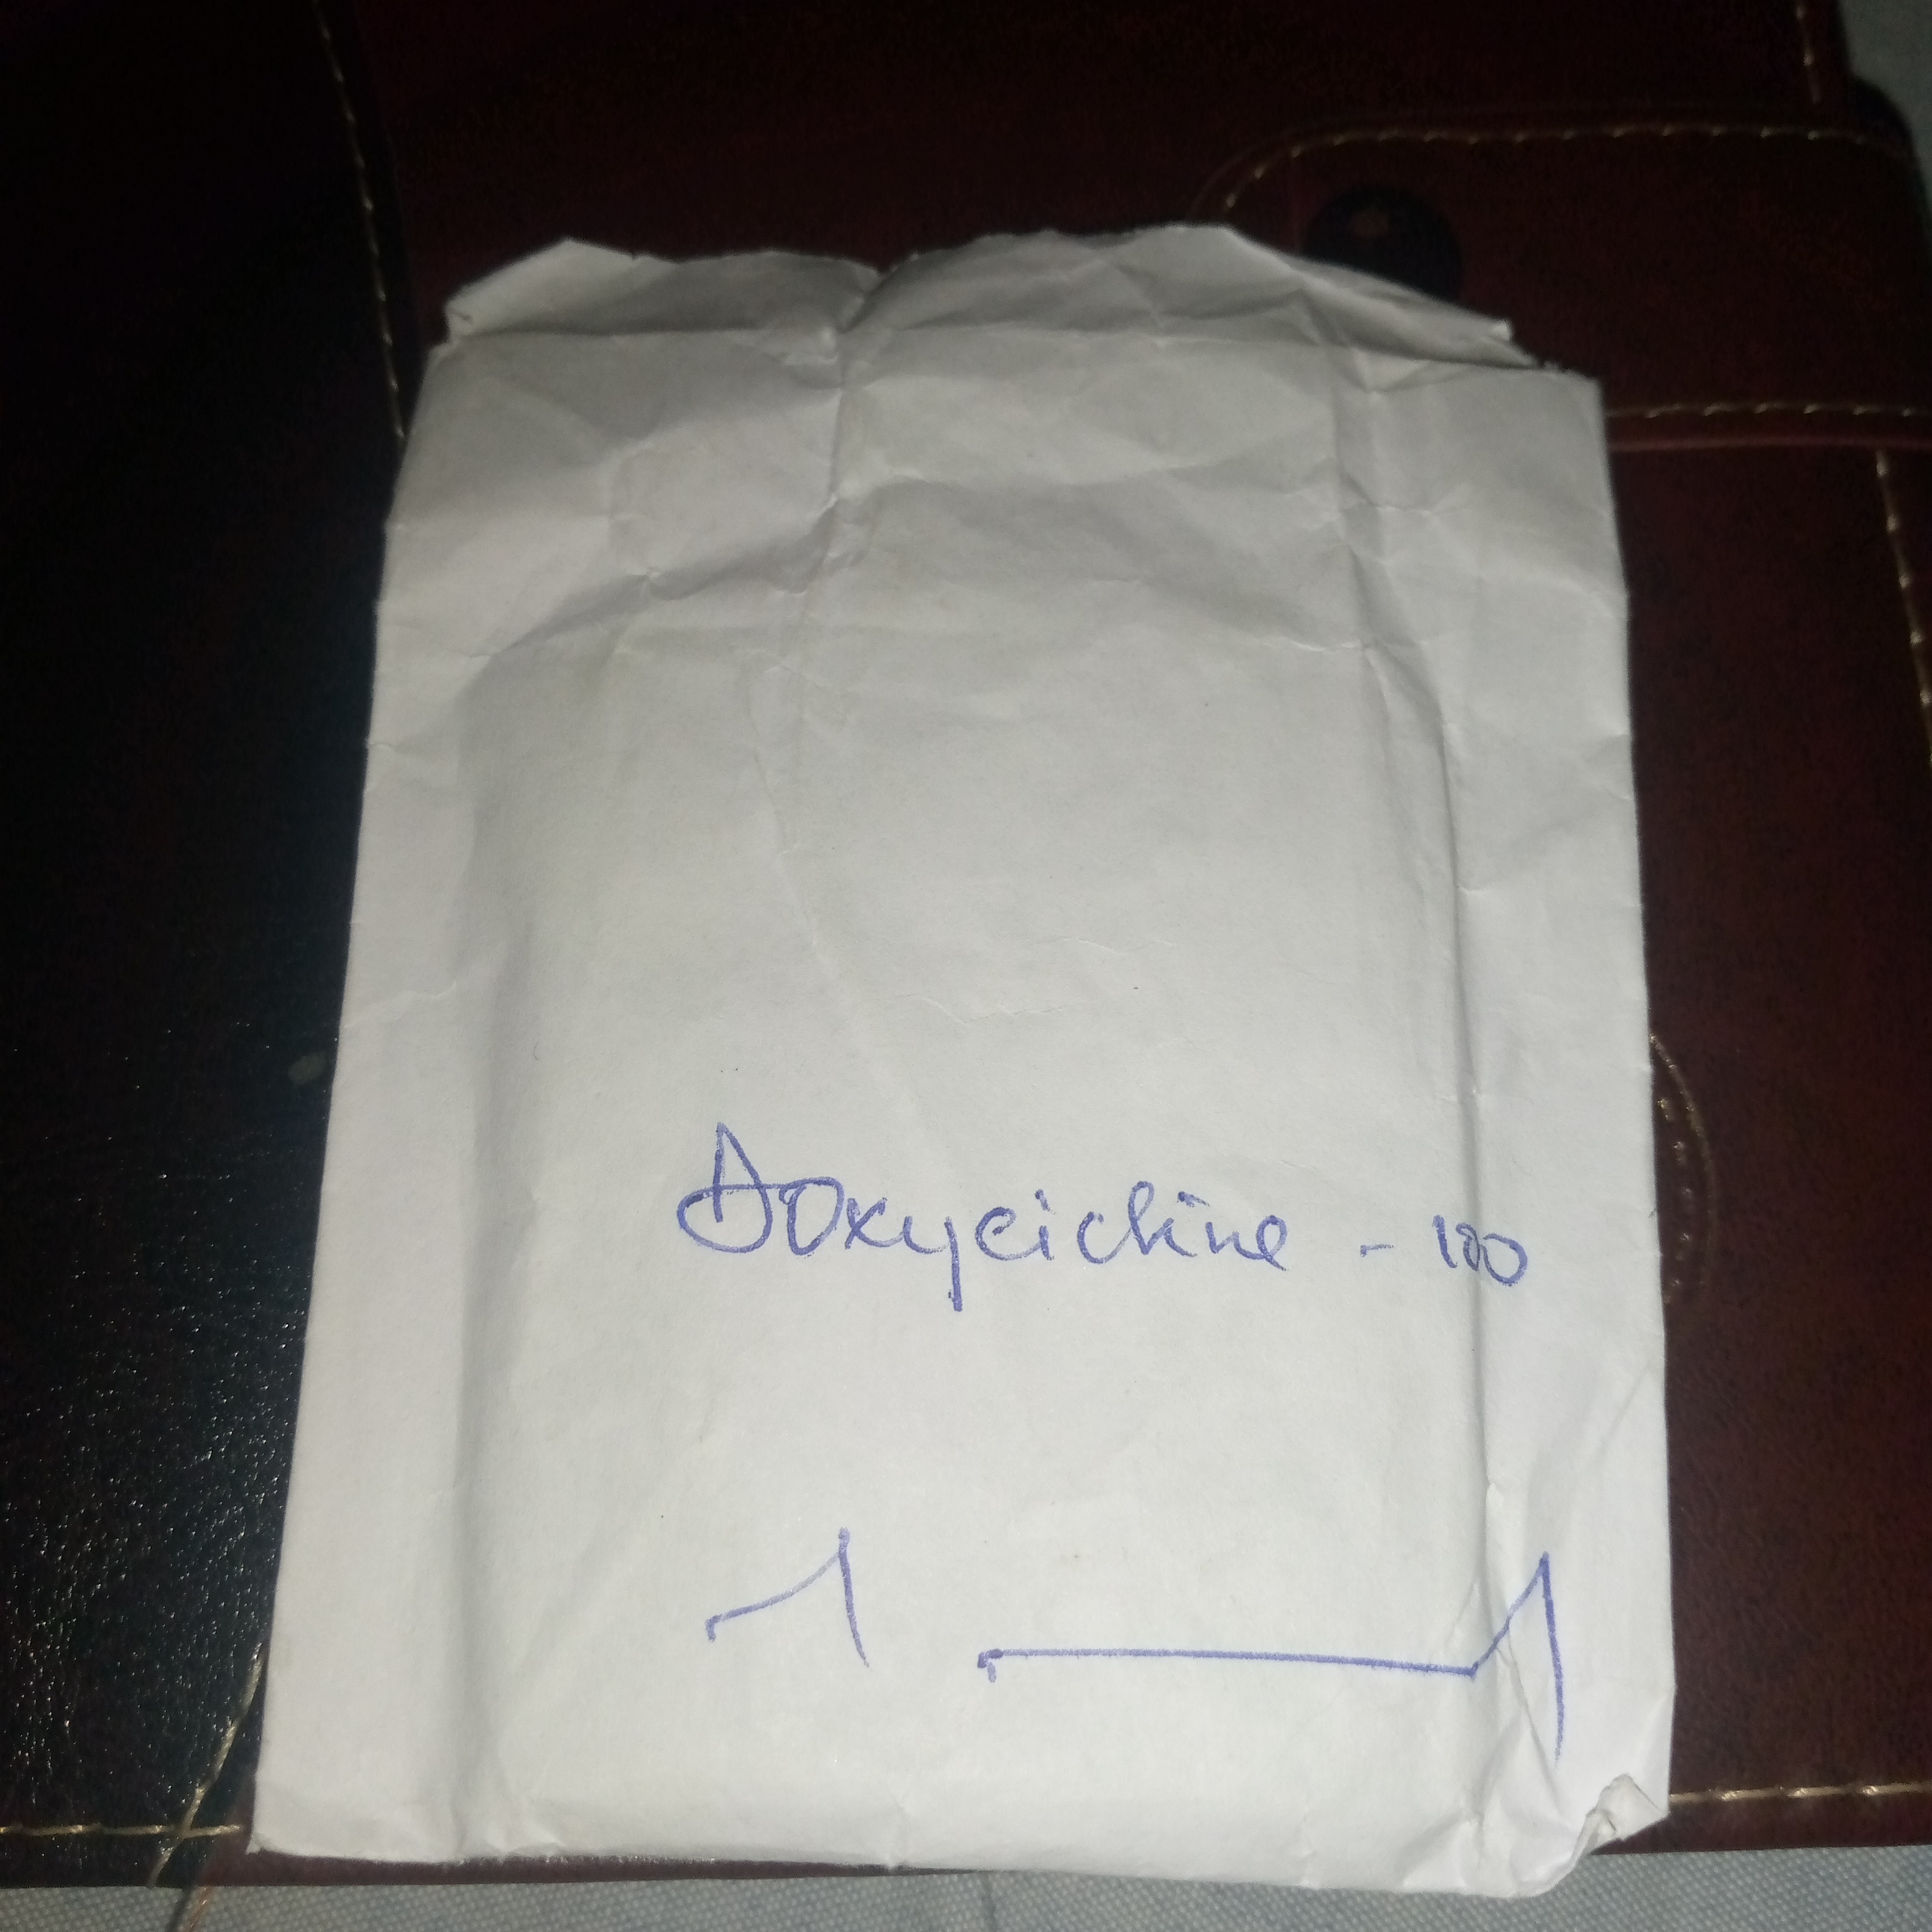 Doxycicline - 100
1 — 1